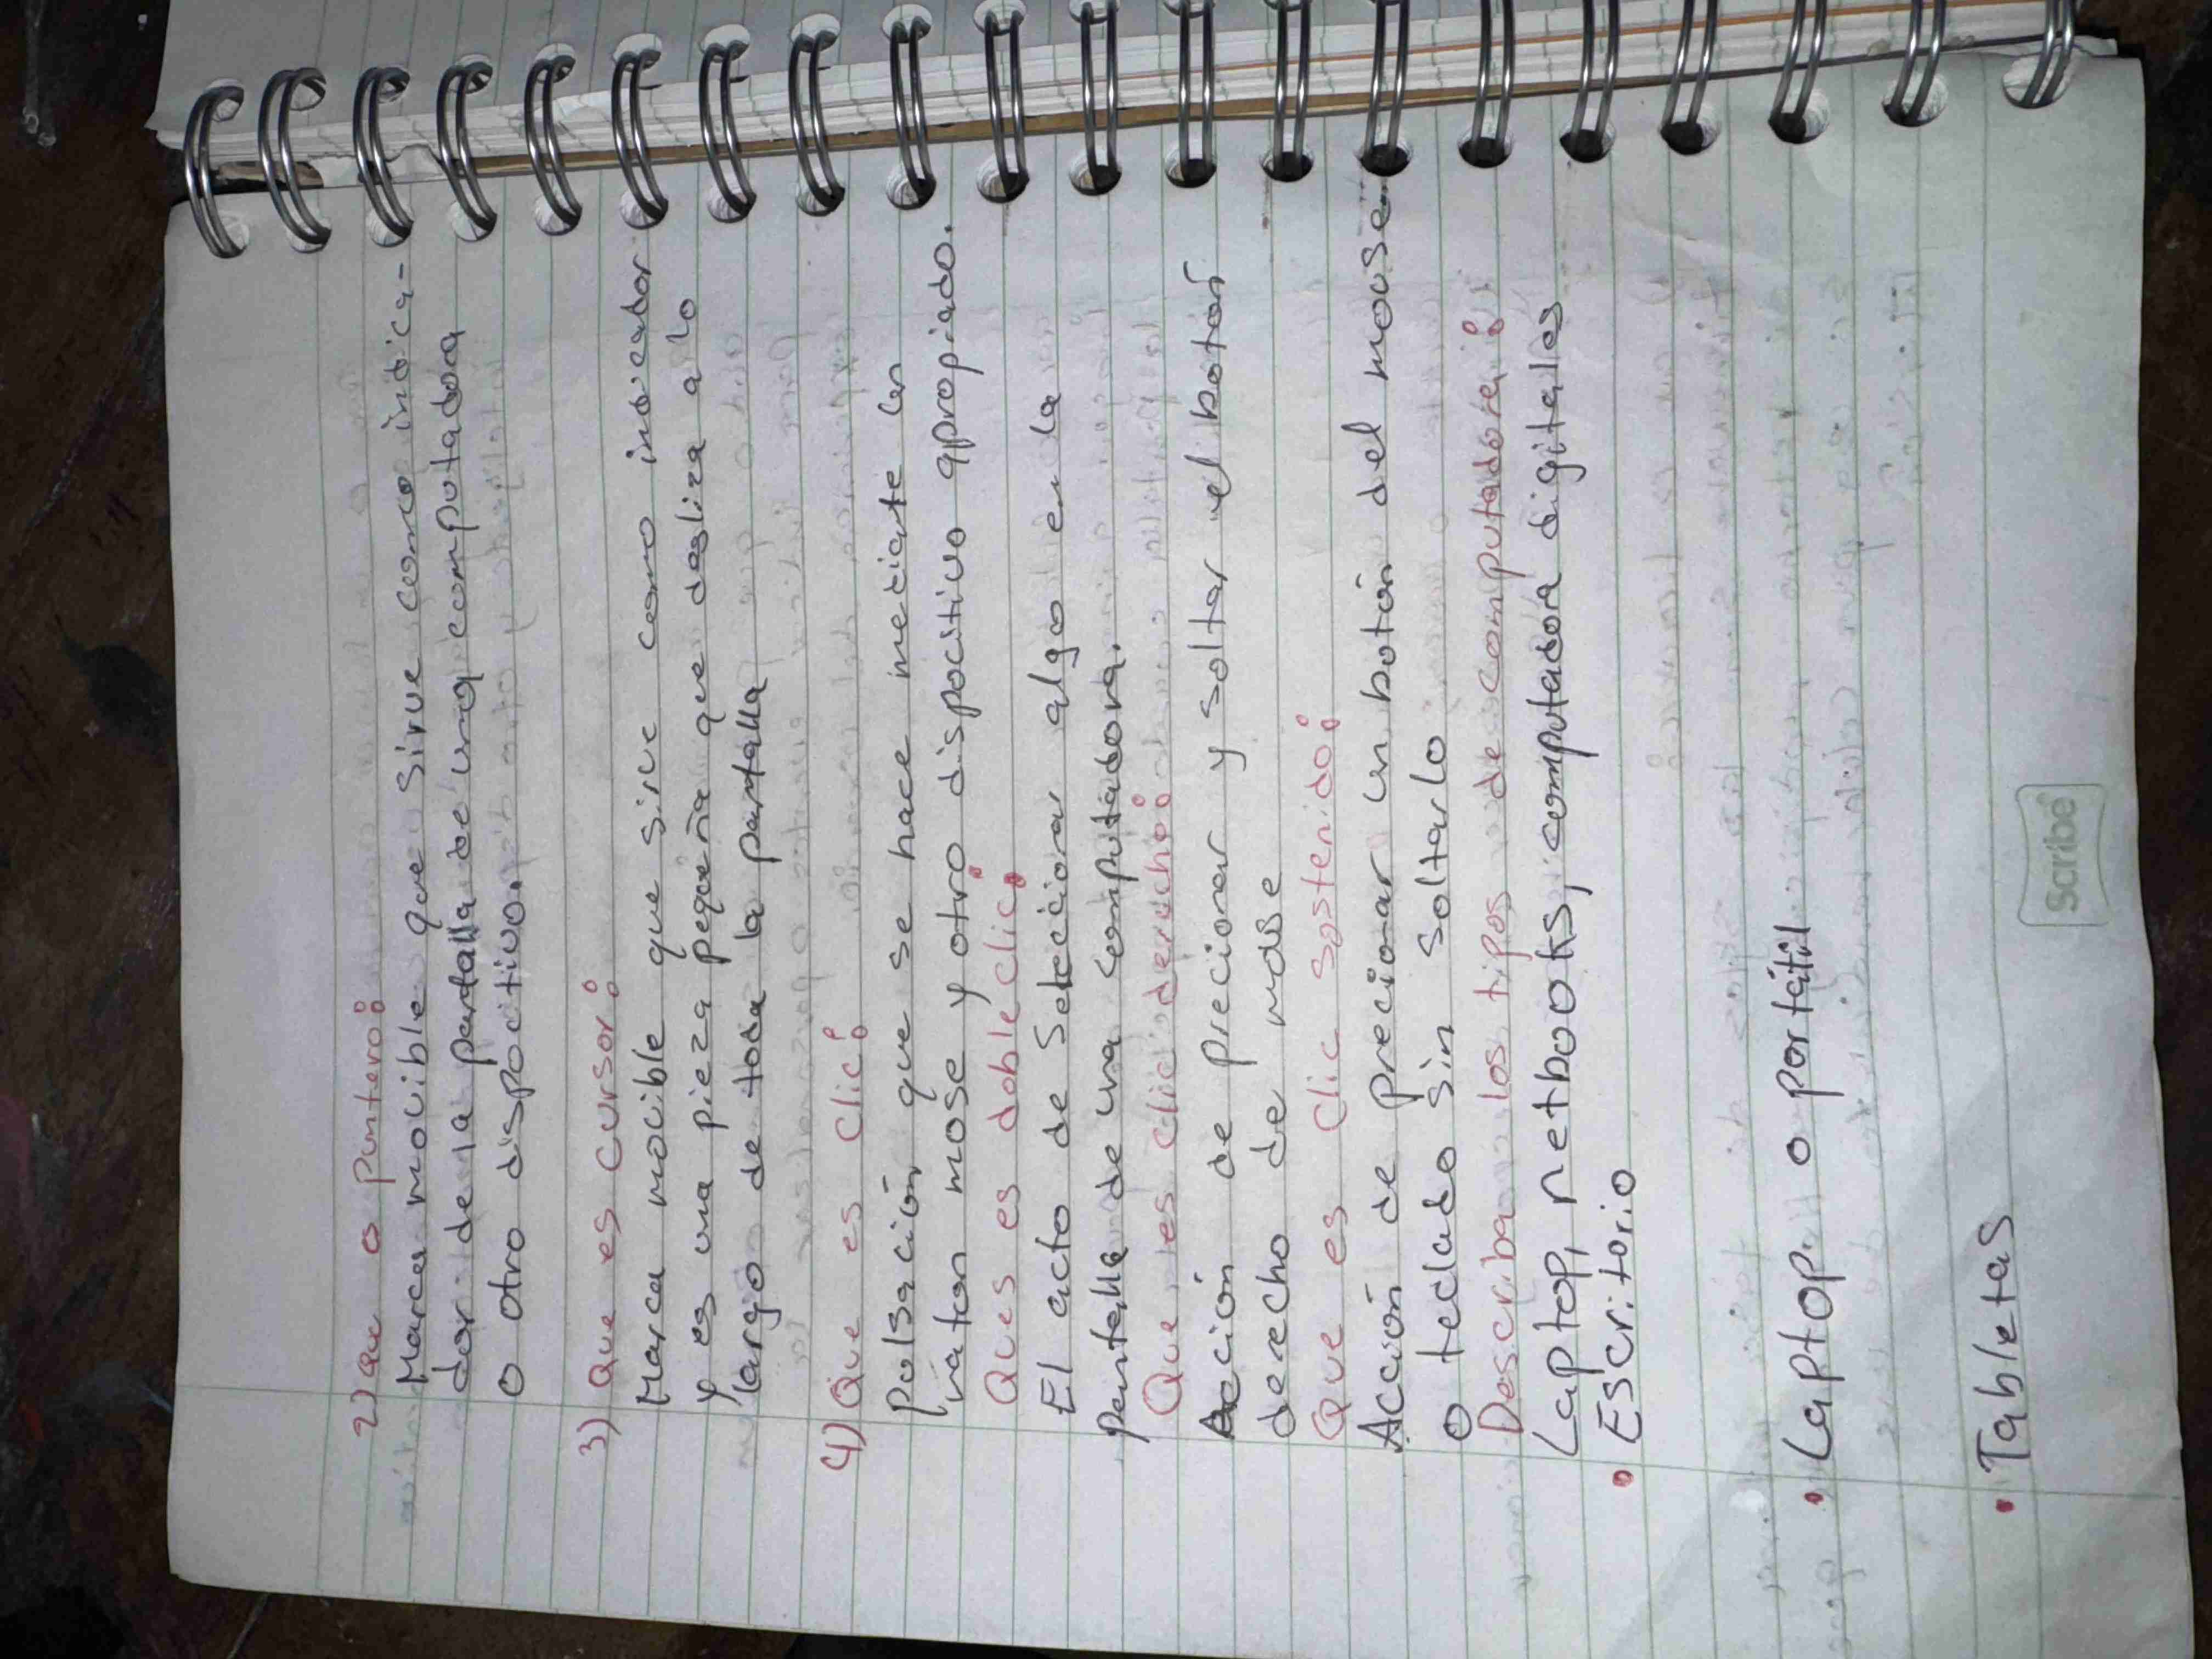 2) Que es puntero:
Marca movible que sirve como indica-
dor de la pantalla de una computadora
o otro dispocitivo.
3) Que es cursor:
Marca movible que sirve como indicador
y es una pieza pequeña que desliza a lo
largo de toda la pantalla
4) Que es Clic:
pulsación que se hace mediante un
raton mose y otro dispocitivo apropiado.
Ques es doble clic:
El acto de Seleccionar algo en la
pantalla de una computadora.
Que es clic derecho:
Acción de precionar y soltar el botón
derecho de mose
Que es Clic sostenido:
Acción de precionar un botón del mouse
o teclado sin soltarlo
Describa los tipos de computadora:
Laptop, netbooks, computadora digitales
• Escritorio
• Laptop o portátil
• Tabletas
Scribe